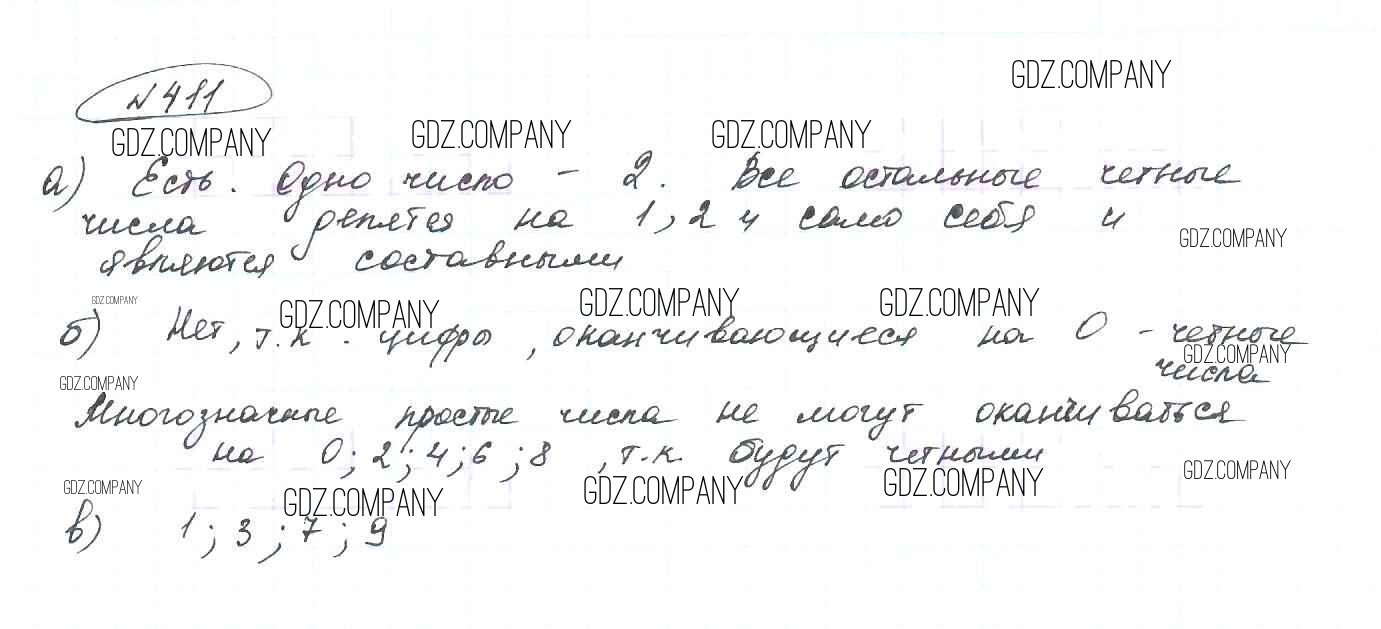 №411
GDZ.COMPANY
GDZ.COMPANY GDZ.COMPANY GDZ.COMPANY
а) Есть. Одно число – 2. Все остальные четные
числа делятся на 1, 2 и само себя и
GDZ.COMPANY
являются составными
GDZ.COMPANY GDZ.COMPANY GDZ.COMPANY GDZ.COMPANY
б) Нет, т.к. цифры, оканчивающиеся на 0 - четные
GDZ.COMPANY
числа
GDZ.COMPANY
Многозначные простые числа не могут оканчиваться
на 0; 2; 4; 6; 8, т.к. будут четными
GDZ.COMPANY GDZ.COMPANY GDZ.COMPANY GDZ.COMPANY GDZ.COMPANY
в) 1; 3; 7; 9